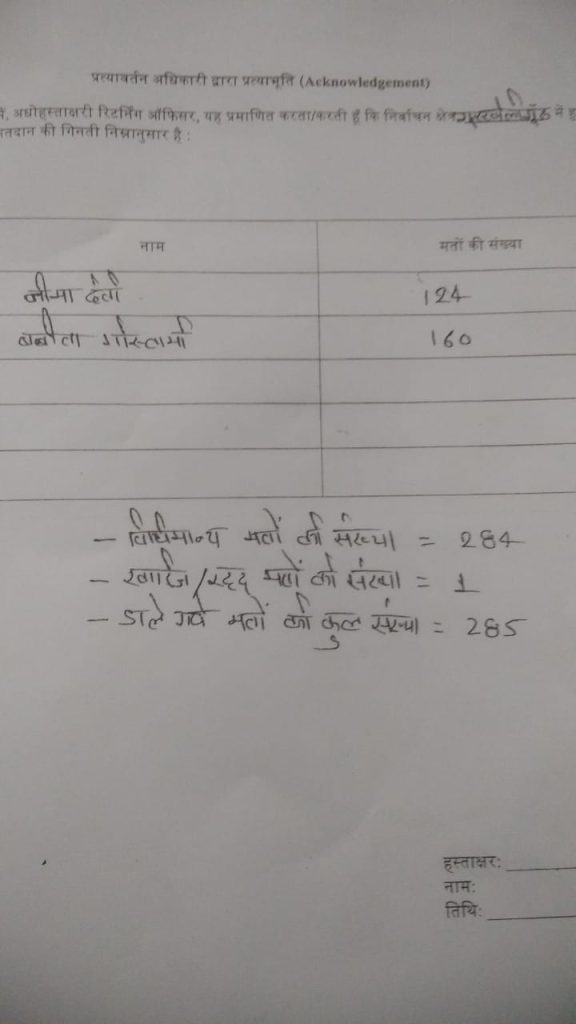 प्रत्यावर्तन अधिकारी द्वारा प्रत्याभूति (Acknowledgement)
अधोहस्ताक्षरी रिटर्निंग ऑफिसर, यह प्रमाणित करता/करती हूँ कि निर्वाचन क्षेत्र में
की गिनती निम्नानुसार है :
नाम मतों की संख्या
देवी 124
बबीता गोस्वामी 160
– विधिमान्य मतों की संख्या = 284
– खारिज/रद्द मतों की संख्या = 1
– डाले गये मतों की कुल संख्या = 285
हस्ताक्षर:
नाम:
तिथि: